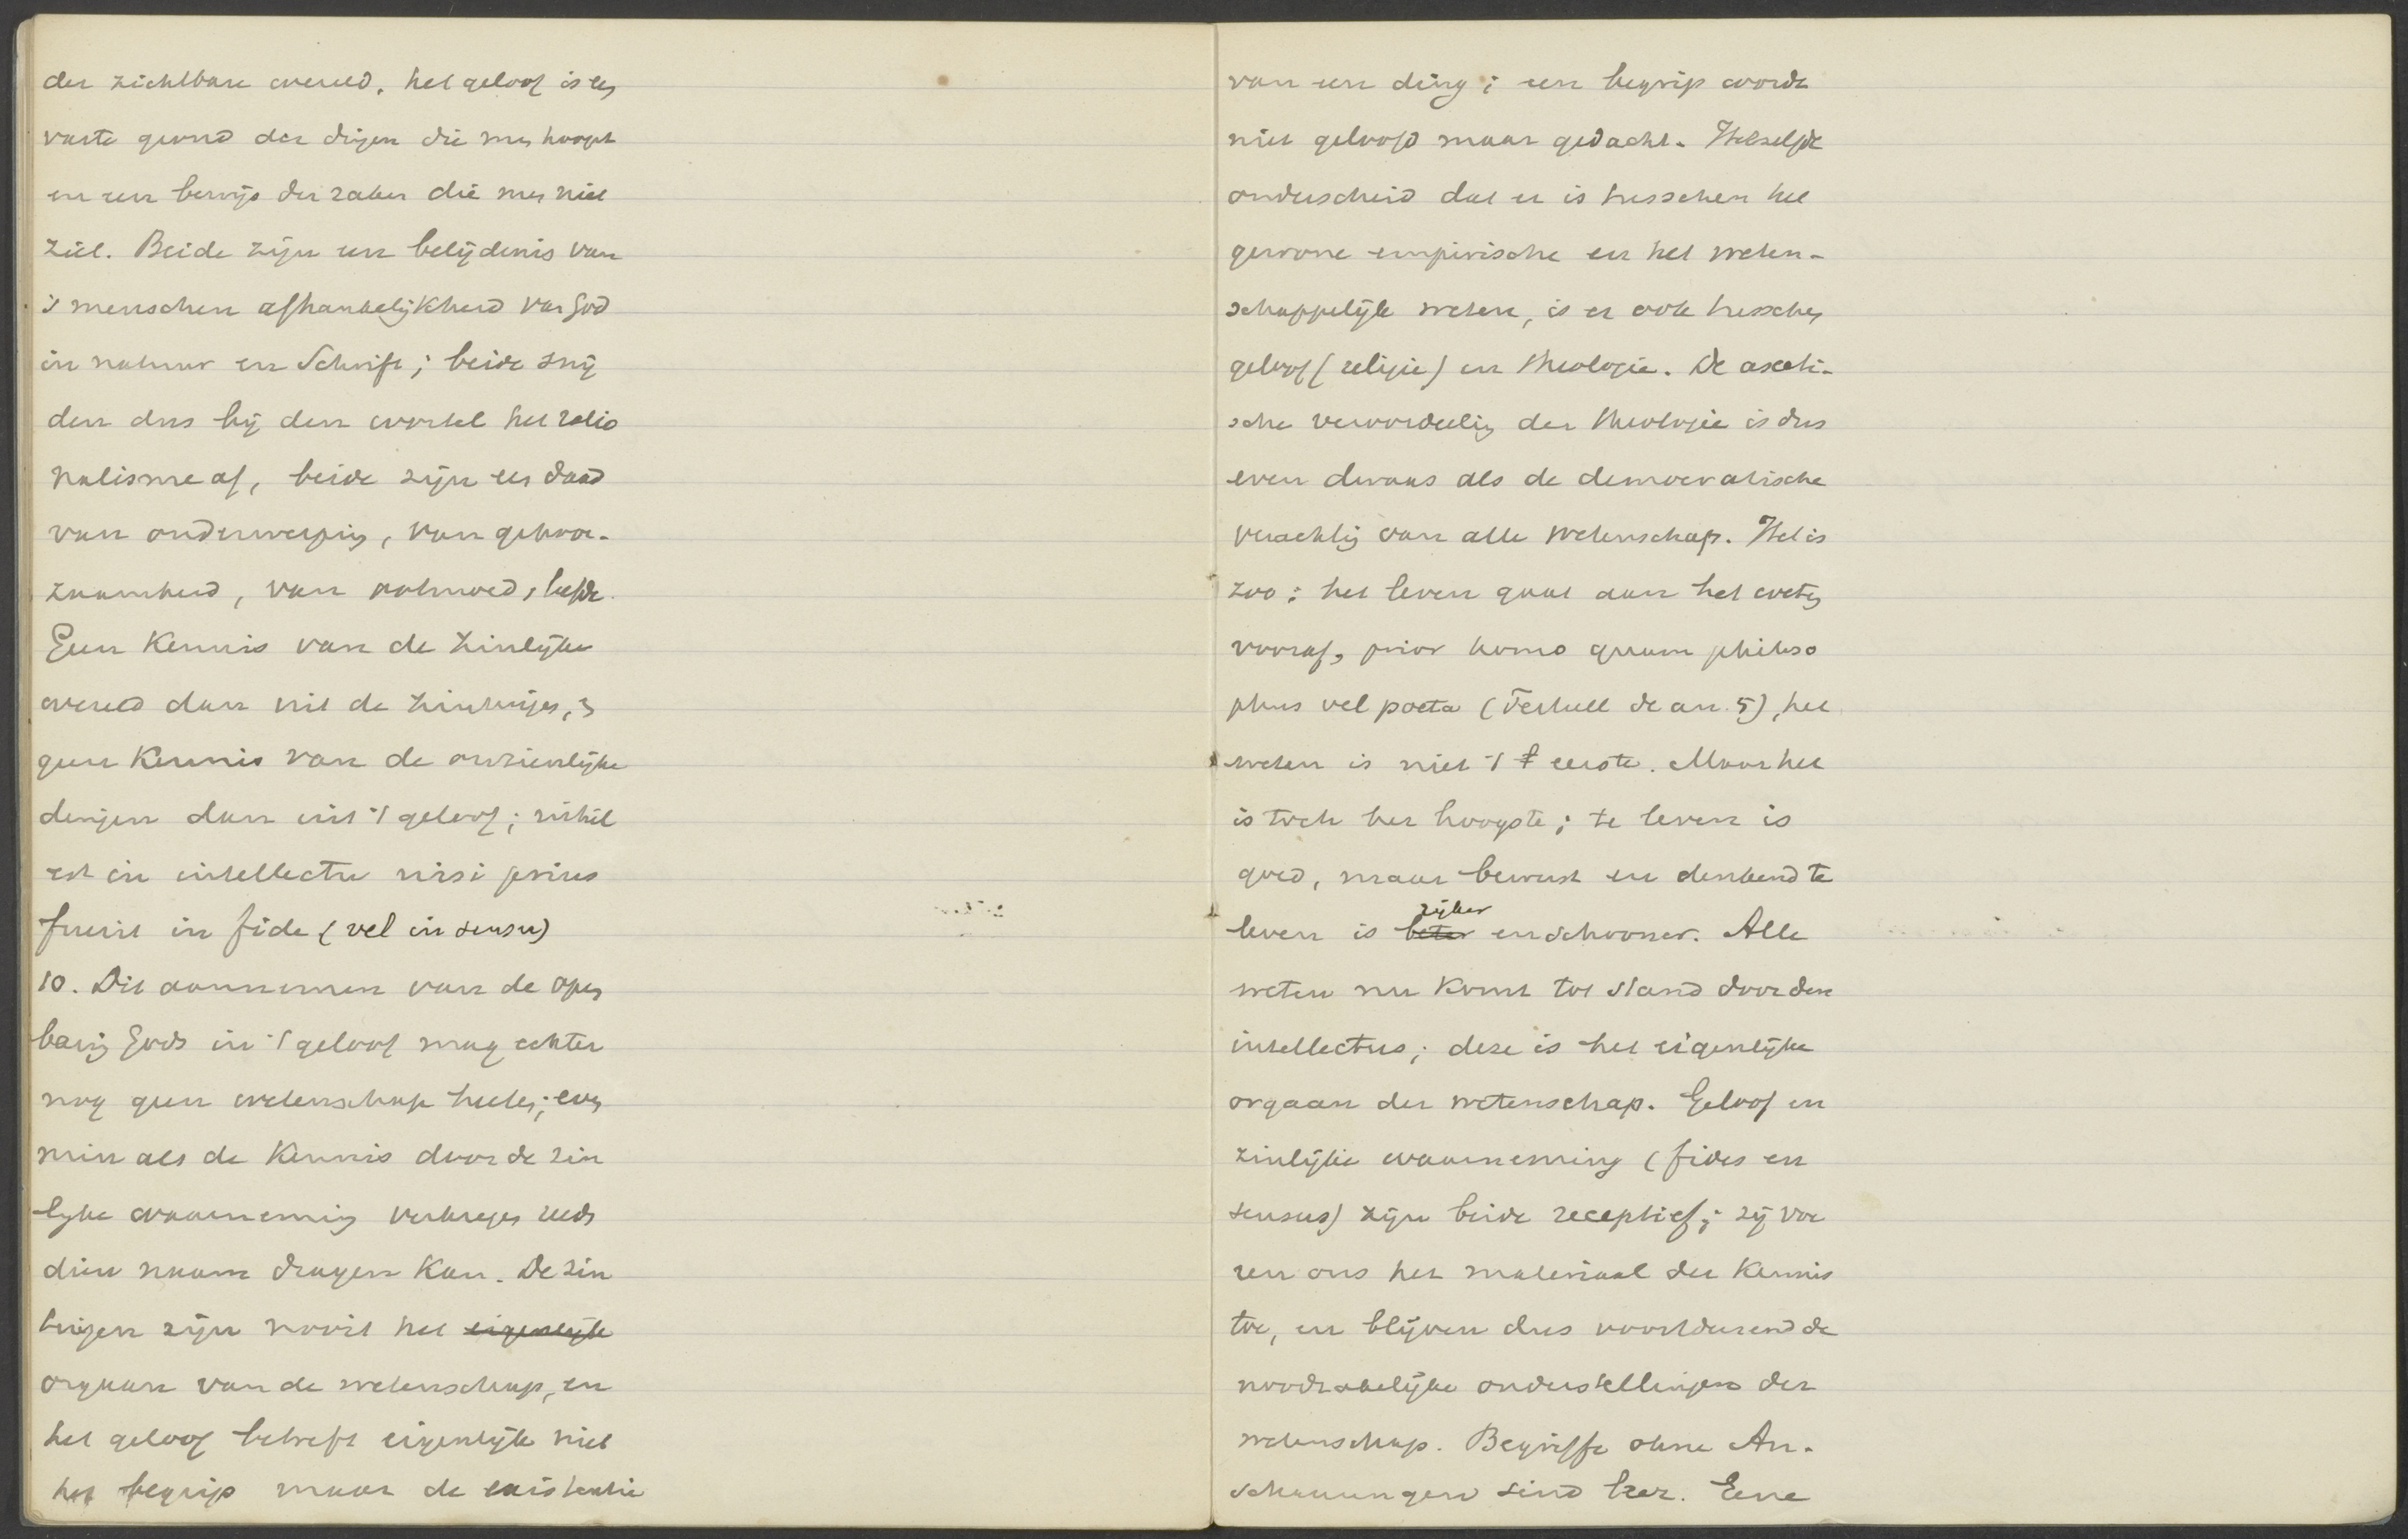 der zichtbare wereld, het geloof is een
vaste grond der dingen die men hoopt
en een bewijs der zaken die men niet
ziet. Beide zijn een belijdenis van
's menschen afhankelijkheid van God
in natuur en Schrift; beide snij
den dus bij den wortel het ratio
nalisme af, beide zijn een daad
van onderwerping, van gehoor-
zaamheid, van ootmoed, liefde.
Geen kennis van de zinlijke
wereld dan uit de zintuigen, en
geen kennis van de onzienlijke
dingen dan uit 't geloof; nihil
est in intellectu nisi prius
fuerit in fide (vel in sensu)
10. Dit aannemen van de open
baring Gods in 't geloof mag echter
nog geen wetenschap heeten; even
min als de kennis door de zin
lijke waarneming verkregen reeds
dien naam dragen kan. De zin
tuigen zijn nooit het eigenlijk
orgaan van de wetenschap, en
het geloof betreft eigenlijk niet
het begrip maar de existentie
van een ding; een begrip wordt
niet geloofd maar gedacht. Hetzelfde
onderscheid dat er is tusschen het
gewone empirische en het weten-
schappelijk weten, is er ook tusschen
geloof (religie) en theologie. De asceti-
sche veroordeeling der theologie is dus
even dwaas als de democratische
verachting van alle wetenschap. Het is
zoo: het leven gaat aan het weten
vooraf, prior homo quam philoso
phus vel poeta (Tertull de an. 5), het
weten is niet 't t eerste. Maar het
is toch het hoogste; te leven is
goed, maar bewust en denkend te
leven is beter rijker en schooner. Alle
weten nu komt tot stand door den
intellectus; deze is het eigenlijke
orgaan der wetenschap. Geloof en
zinlijke waarneming (fides en
sensus) zijn beide receptief; zij voe
ren ons het materiaal der kennis
toe, en blijven dus voortdurend de
noodzakelijke onderstellingen der
wetenschap. Begriffe ohne An-
schauungen sind leer. Eene